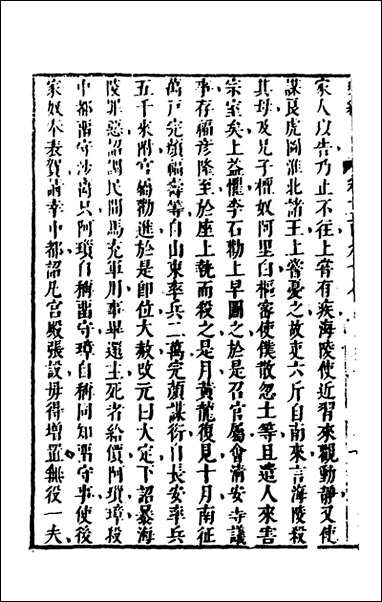 家人以告乃止不往上嘗有疾海陵使近習來觀動靜又使
謀良虎圖淮北諸王上嘗憂之故吏六斤自南來言海陵殺
其母及兄子檀奴阿里白樞密使僕散忽土等且遣人來害
宗室矣上益懼李石勒上早圖之於是召官屬會淸安寺議
事存福彦隆至於座上執而殺之是月黃龍復見十月南征
萬戸完顔福壽等自山東率兵二萬完顔謀衍自長安率兵
五千來附官屬勸進於是卽位大赦改元曰大定下詔暴海
陵罪惡詔調民間馬充軍用事畢還主死者給價阿瑣璋殺
中都畱守沙离只阿瑣自稱畱守璋自稱同知畱守事使後
家奴奉表賀請幸中都詔凡宮殿張設毋得增置無役一夫